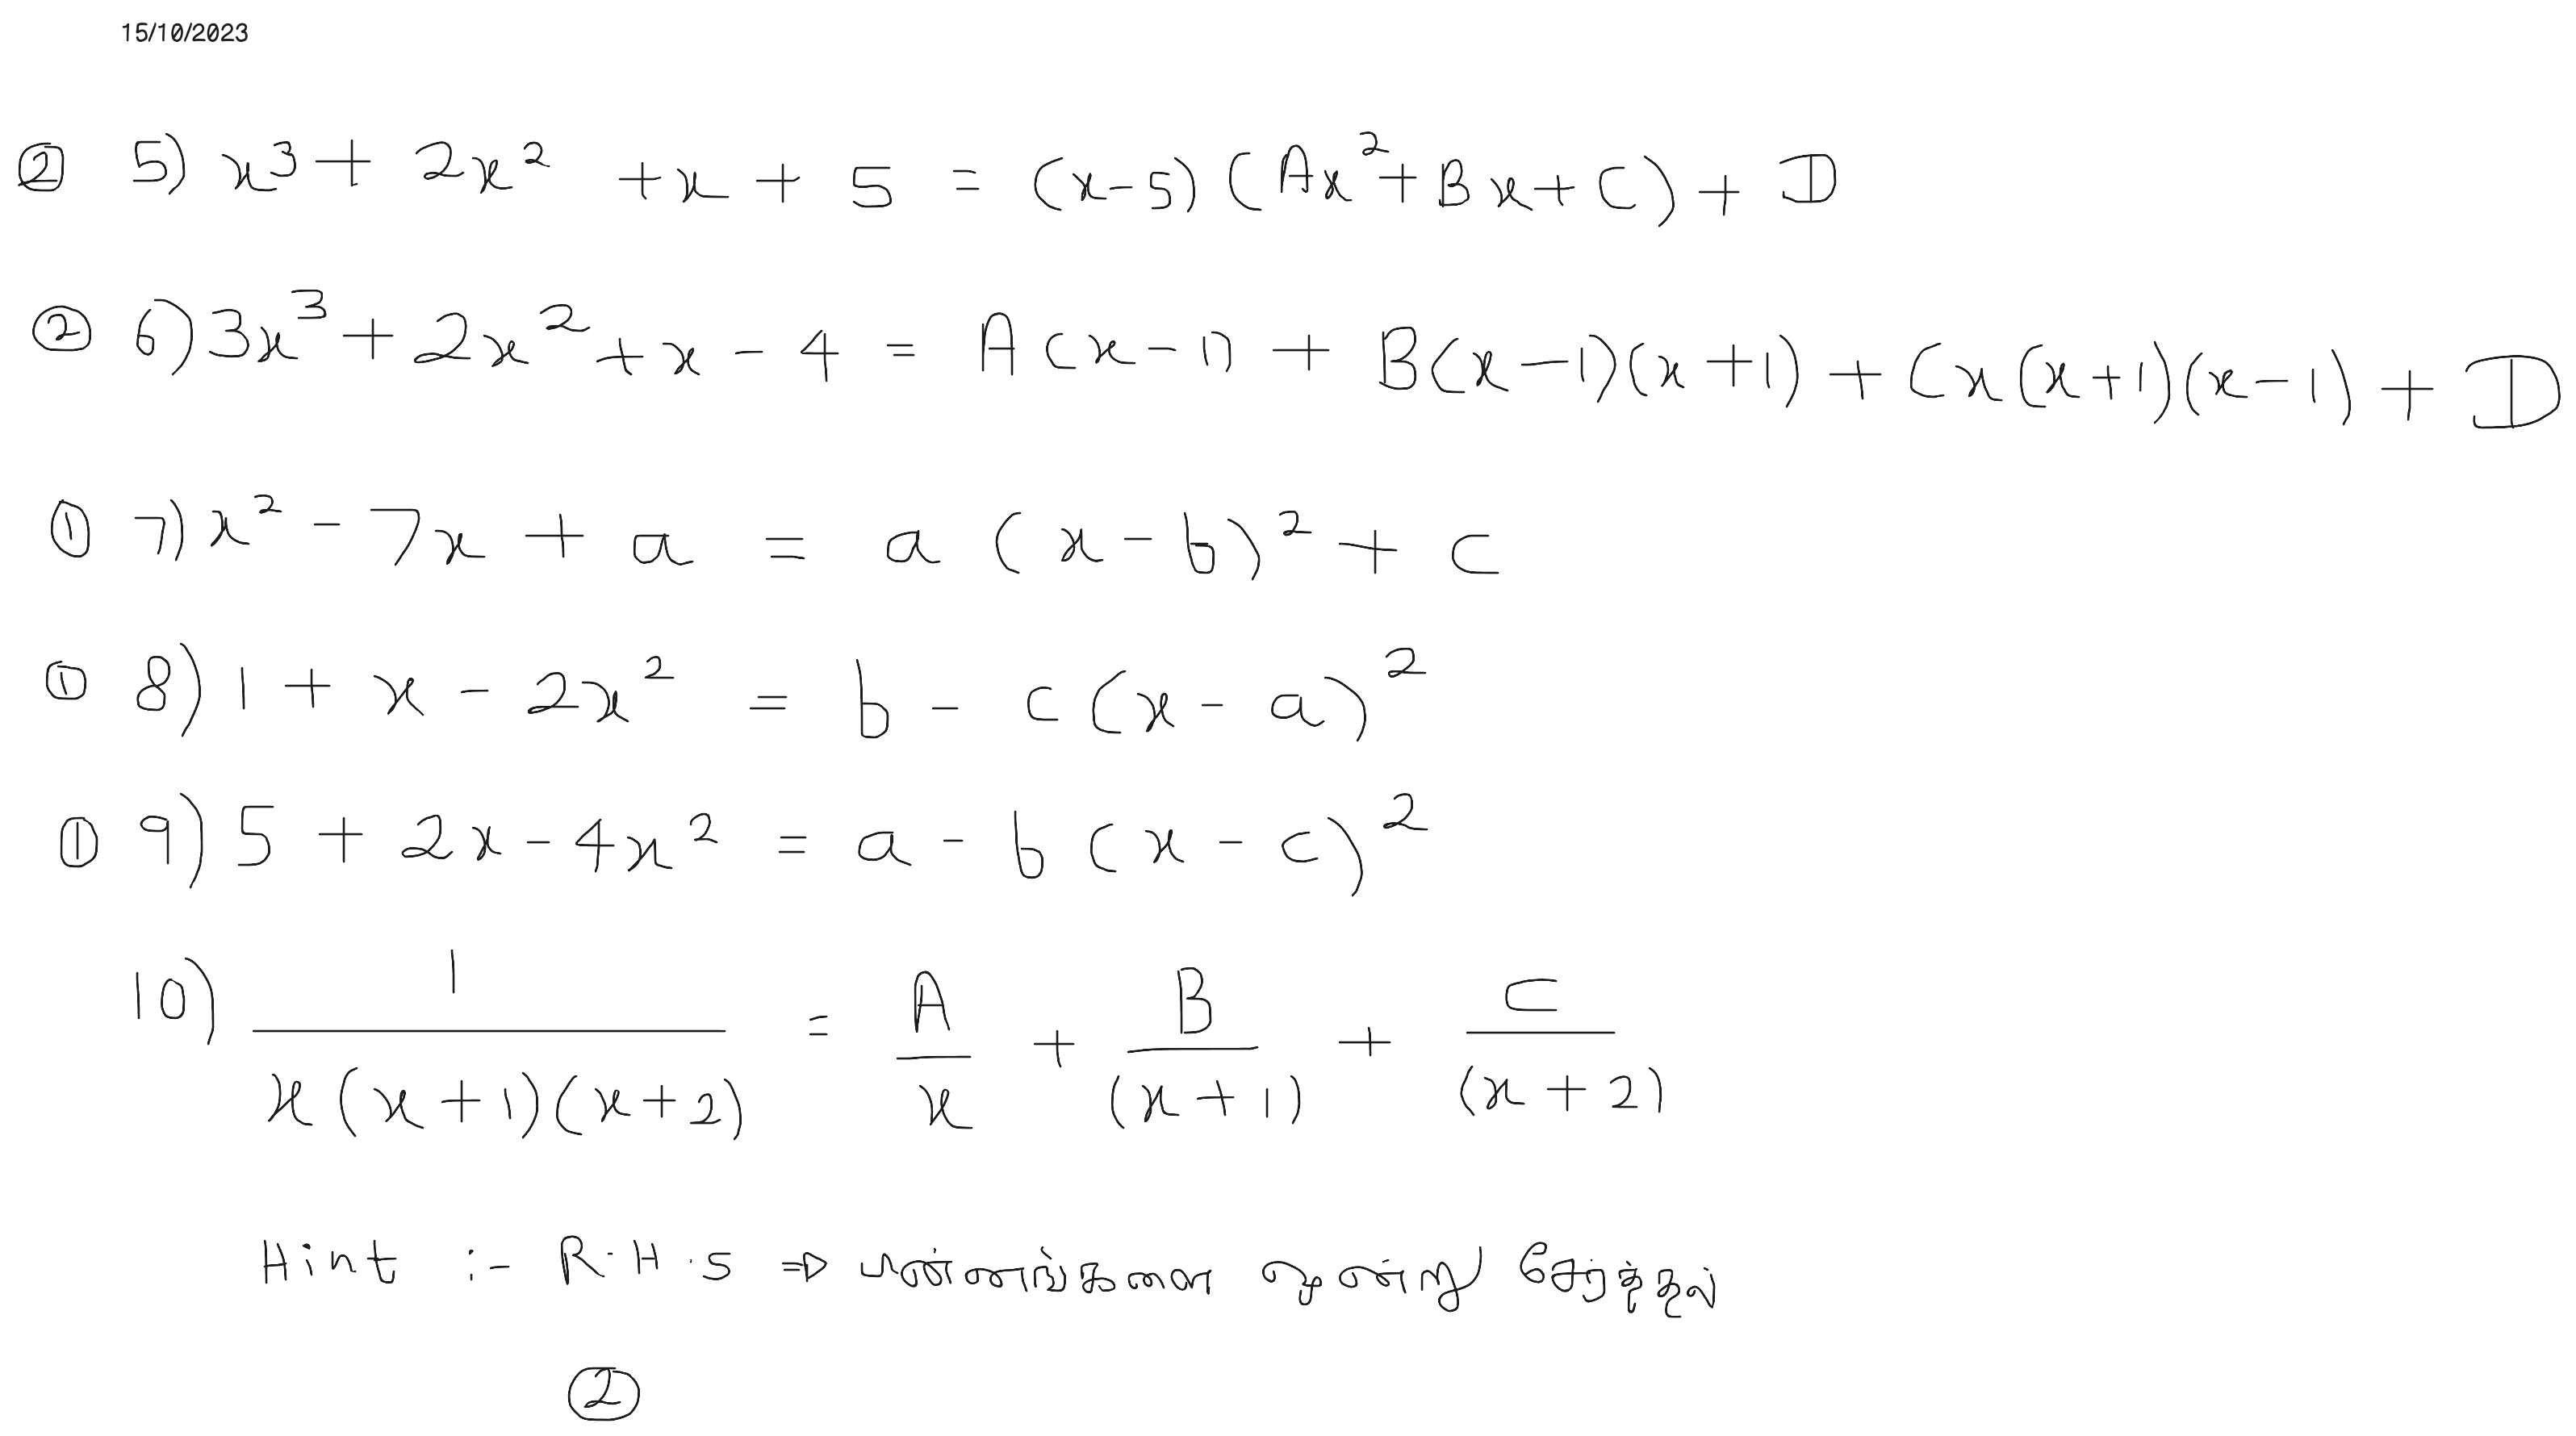 15/10/2023
② 5) x³ + 2x² + x + 5 = (x-5) (Ax² + Bx + C) + D
② 6) 3x³ + 2x² + x - 4 = A(x-1) + B(x-1)(x+1) + Cx(x+1)(x-1) + D
① 7) x² - 7x + a = a (x-b)² + c
① 8) 1 + x - 2x² = b - c(x-a)²
① 9) 5 + 2x - 4x² = a - b(x-c)²
10) 1/(x(x+1)(x+2)) = A/x + B/(x+1) + C/(x+2)
Hint :- R.H.S ⇒ பின்னங்களை ஒன்று சேர்த்தல்
②